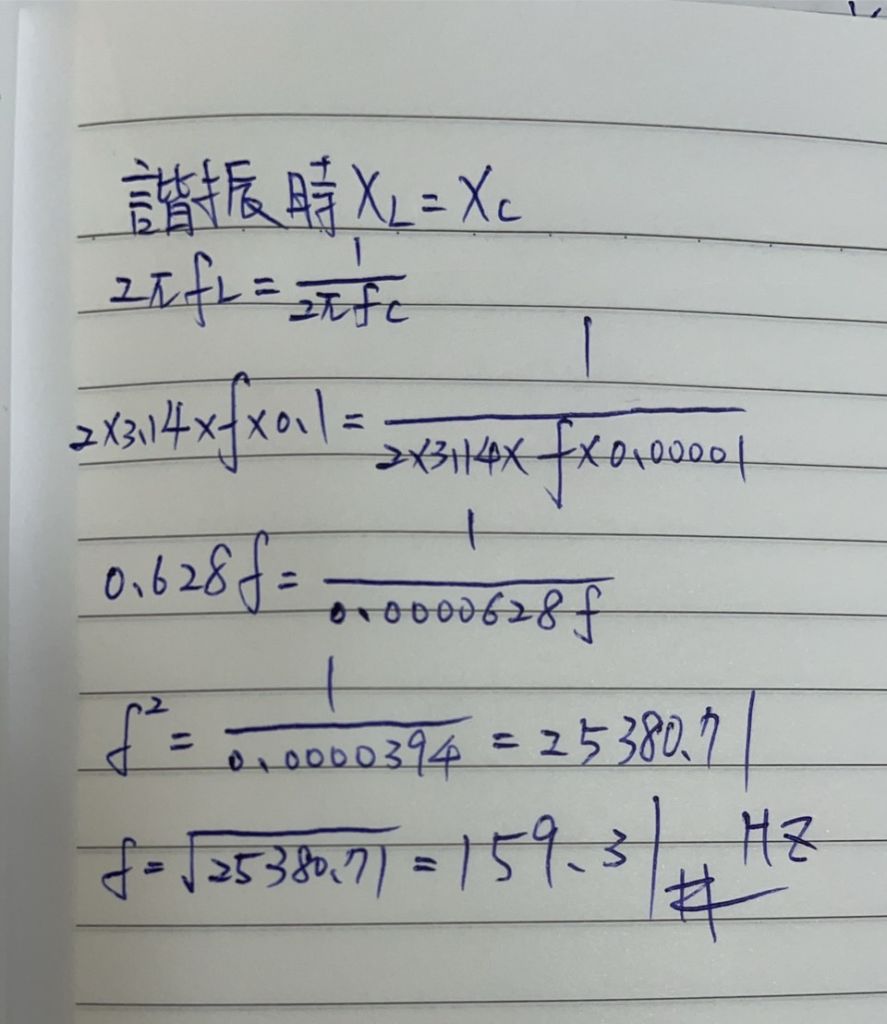 諧振時 X_L = X_C
2πfL = 1/(2πfC)
2×3.14×f×0.1 = 1/(2×3.14×f×0.00001)
0.628f = 1/(0.0000628f)
f² = 1/0.0000394 = 25380.71
f = √25380.71 = 159.31 HZ #